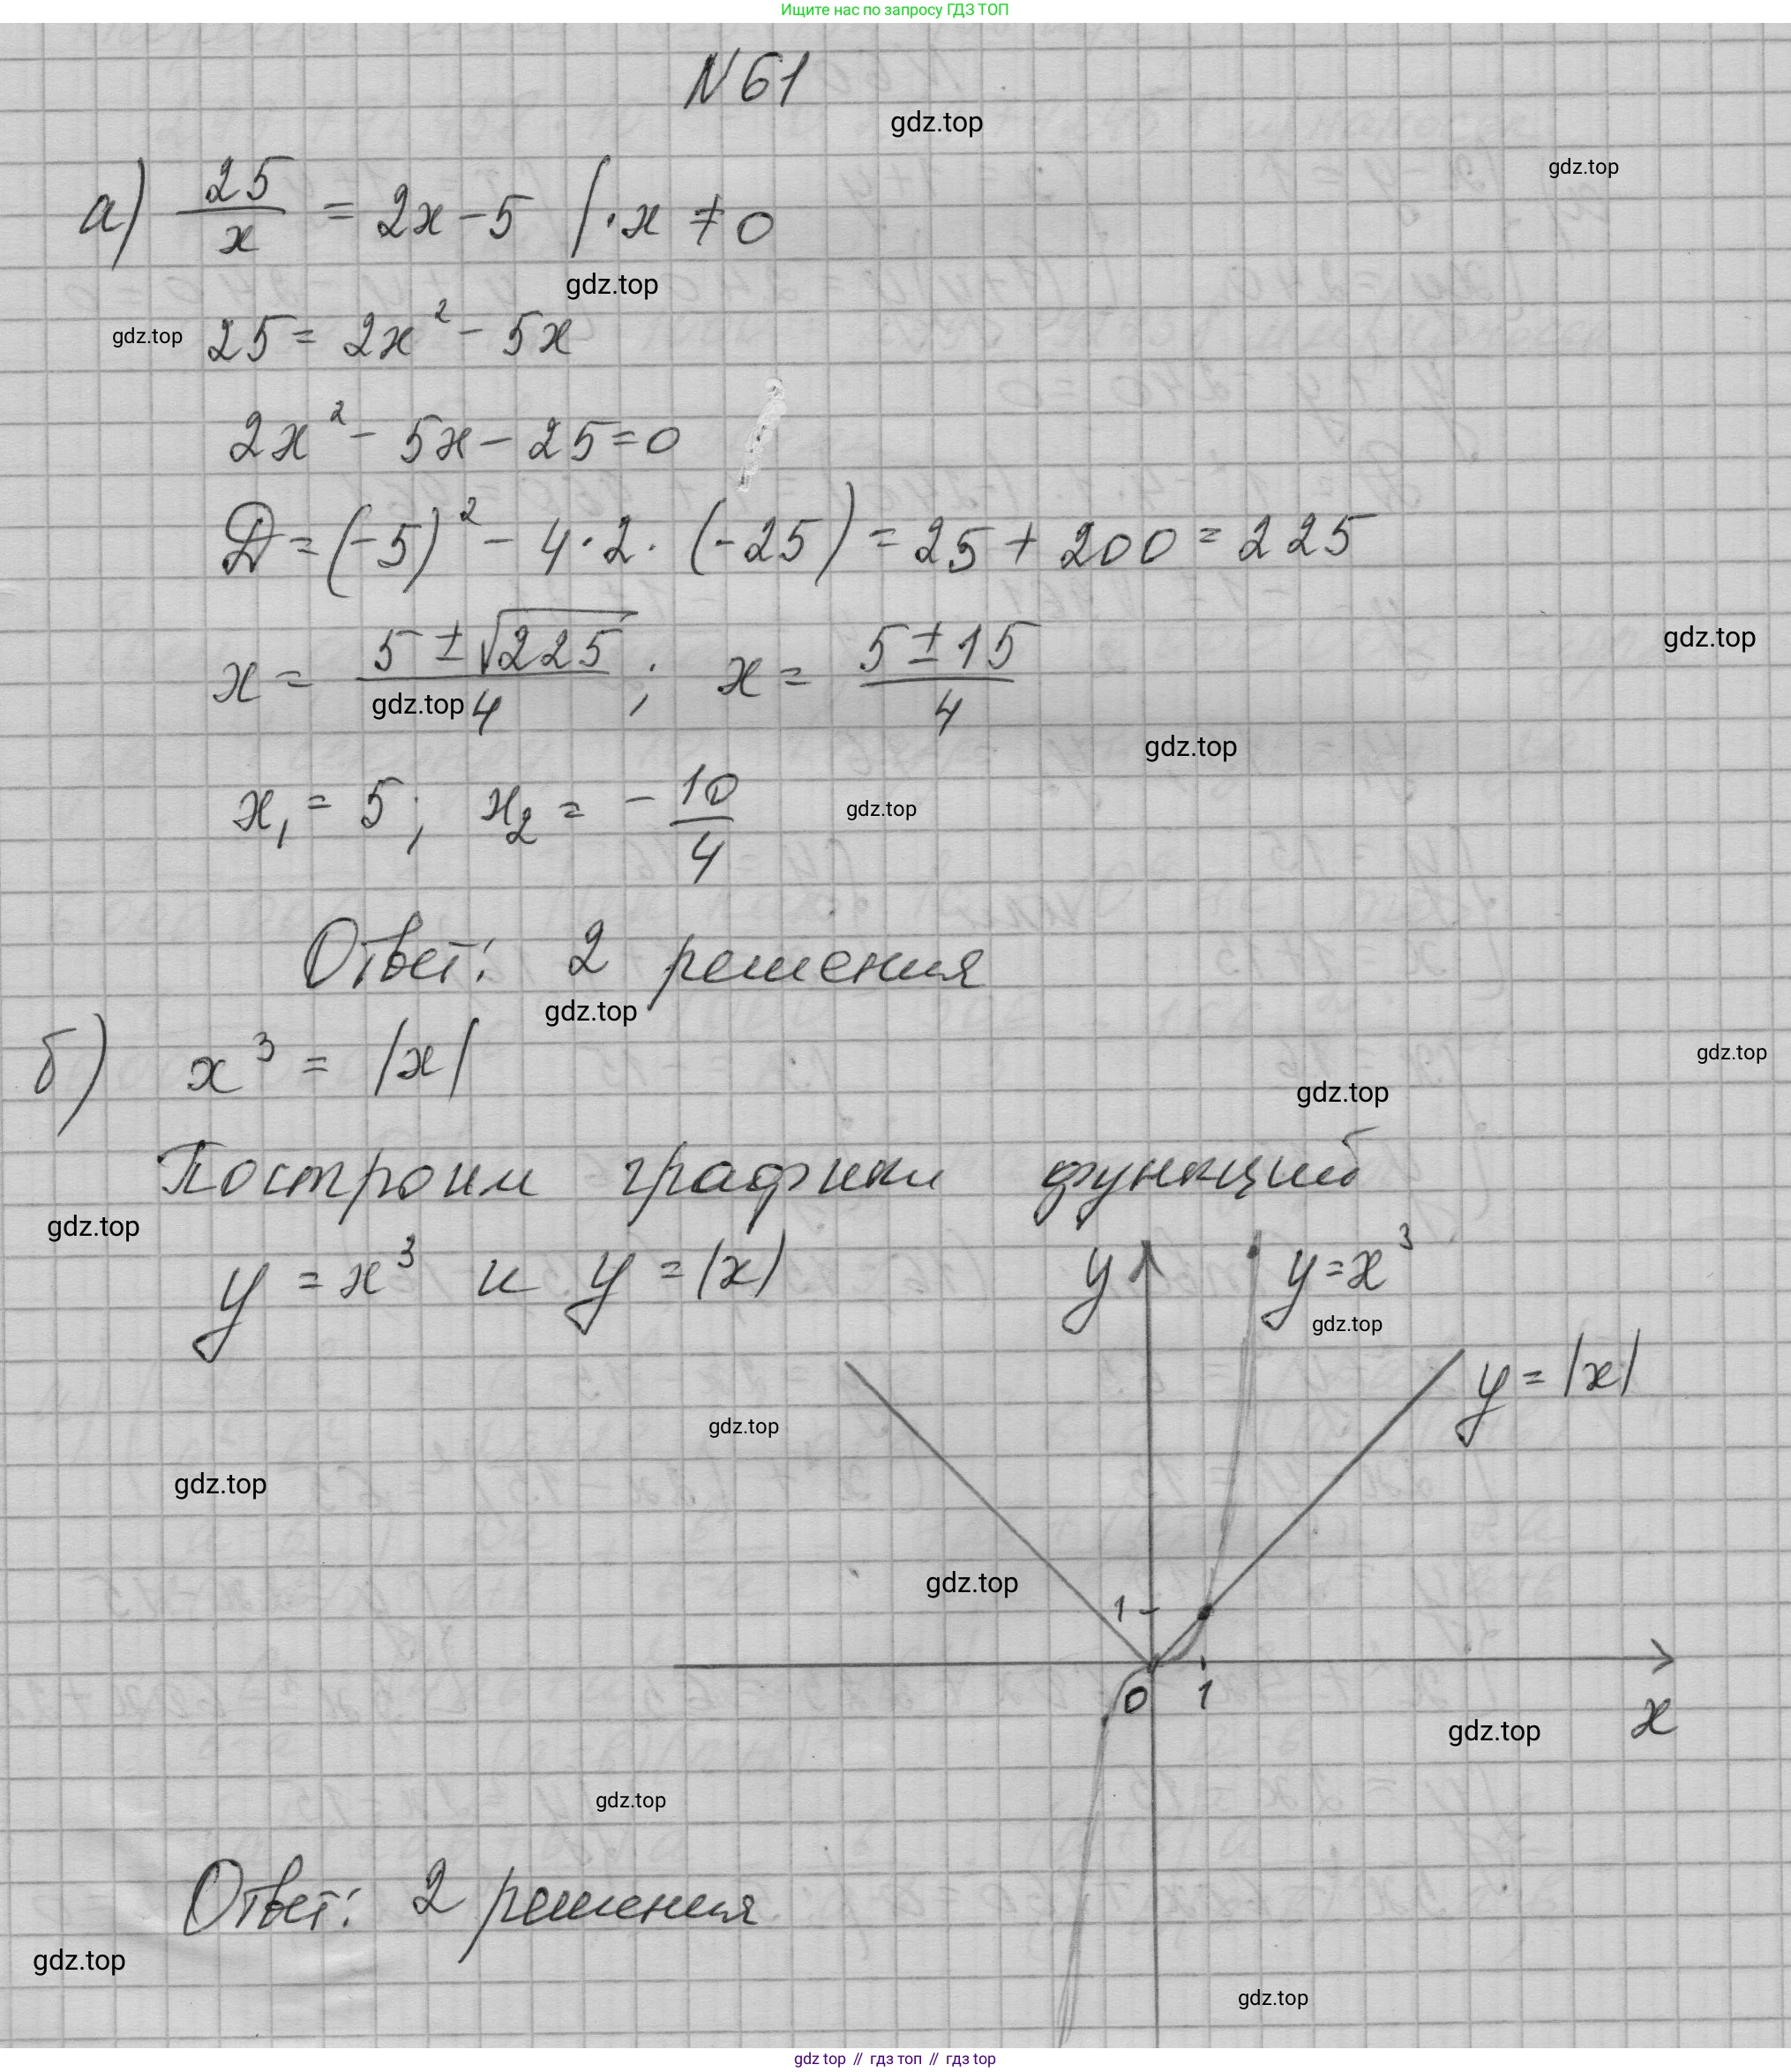 Ищите нас по запросу ГДЗ ТОП
N 61
gdz.top
gdz.top
а) 25/x = 2x - 5 | · x ≠ 0
gdz.top
gdz.top
25 = 2x² - 5x
2x² - 5x - 25 = 0
D = (-5)² - 4 · 2 · (-25) = 25 + 200 = 225
gdz.top
x = (5 ± √225)/4 ; x = (5 ± 15)/4
gdz.top
gdz.top
x₁ = 5 ; x₂ = - 10/4
gdz.top
Ответ: 2 решения
gdz.top
б) x³ = |x|
gdz.top
gdz.top
Построим графики функций
gdz.top
y = x³ и y = |x|
y
y = x³
gdz.top
y = |x|
gdz.top
gdz.top
gdz.top
1
0
1
x
gdz.top
gdz.top
Ответ: 2 решения
gdz.top
gdz.top
gdz top // гдз топ // гдз top